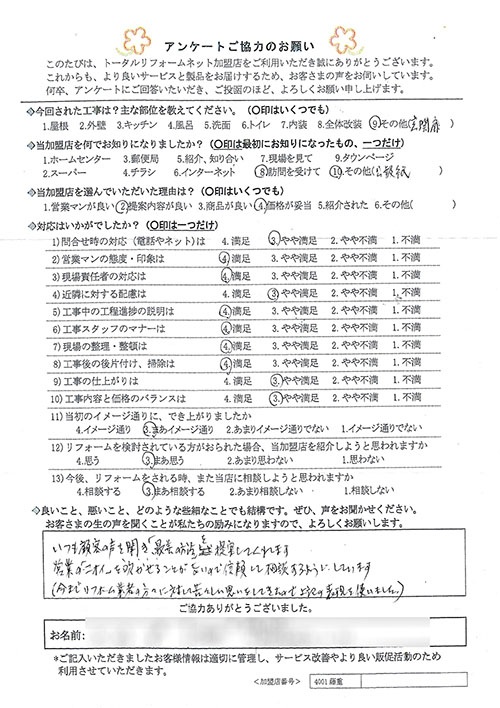 アンケートご協力のお願い
このたびは、トータルリフォームネット加盟店をご利用いただき誠にありがとうございます。
これからも、より良いサービスと製品をお届けするため、お客さまの声をお伺いしています。
何卒、アンケートにご回答いただき、ご投函のほど、よろしくお願い申し上げます。
◆今回された工事は？主な部位を教えてください。（○印はいくつでも）
1.屋根 2.外壁 3.キッチン 4.風呂 5.洗面 6.トイレ 7.内装 8.全体改装 ⑨その他(玄関扉)
◆当加盟店を何でお知りになりましたか？（○印は最初にお知りになったもの、一つだけ）
1.ホームセンター 3.郵便局 5.紹介、知り合い 7.現場を見て 9.タウンページ
2.スーパー 4.チラシ 6.インターネット ⑧訪問を受けて ⑩その他(
◆当加盟店を選んでいただいた理由は？（○印はいくつでも）
1.営業マンが良い ②提案内容が良い 3.商品が良い ④価格が妥当 5.紹介された 6.その他( )
◆対応はいかがでしたか？（○印は一つだけ）
1)問合せ時の対応（電話やネット）は 4.満足 ③.やや満足 2.やや不満 1.不満
2)営業マンの態度・印象は ④満足 3.やや満足 2.やや不満 1.不満
3)現場責任者の対応は ④満足 3.やや満足 2.やや不満 1.不満
4)近隣に対する配慮は 4.満足 ③やや満足 2.やや不満 1.不満
5)工事中の工程進捗の説明は ④満足 3.やや満足 2.やや不満 1.不満
6)工事スタッフのマナーは ④満足 3.やや満足 2.やや不満 1.不満
7)現場の整理・整頓は ④満足 3.やや満足 2.やや不満 1.不満
8)工事後の後片付け、掃除は ④満足 3.やや満足 2.やや不満 1.不満
9)工事の仕上がりは 4.満足 ③やや満足 2.やや不満 1.不満
10)工事内容と価格のバランスは 4.満足 ③やや満足 2.やや不満 1.不満
11)当初のイメージ通りに、でき上がりましたか
4.イメージ通り ③.まあイメージ通り 2.あまりイメージ通りでない 1.イメージ通りでない
12)リフォームを検討されている方がおられた場合、当加盟店を紹介しようと思われますか
4.思う ③まあ思う 2.あまり思わない 1.思わない
13)今後、リフォームをされる時、また当店に相談しようと思われますか
4.相談する ③まあ相談する 2.あまり相談しない 1.相談しない
◆良いこと、悪いこと、どのような些細なことでも結構です。ぜひ、声をお聞かせください。
お客さまの生の声を聞くことが私たちの励みになりますので、よろしくお願いします。
いつも顧客の声を聞き「最善の方法を」提案してくれます
営業の"ニオイ"を吹かせることがないので信頼して相談するようにしています
(今までリフォーム業者の方々に対して苦々しい思いをしてきたので上記の表現を使いました。)
ご協力ありがとうございました。
お名前:
*ご記入いただきましたお客様情報は適切に管理し、サービス改善やより良い販促活動のため
利用させていただきます。
<加盟店番号> 4001 藤重